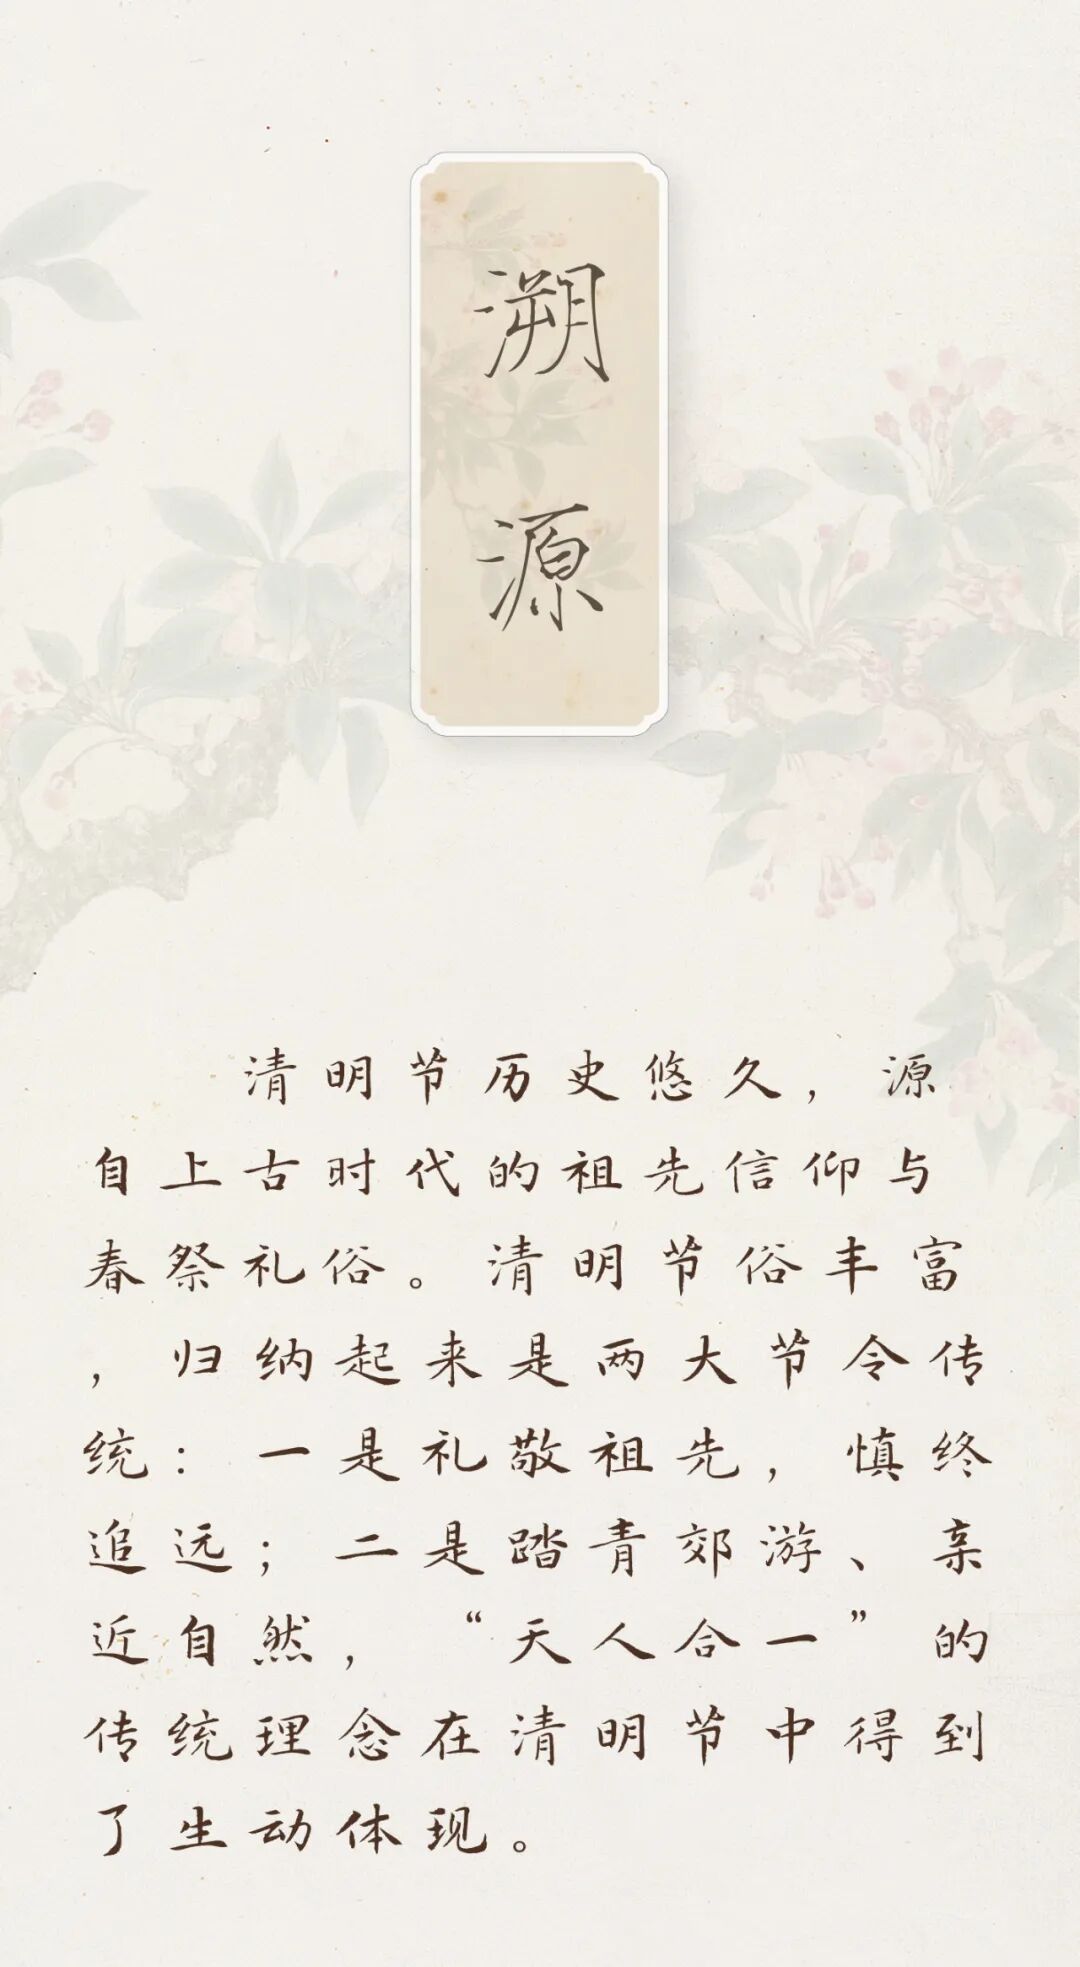 溯
源
清明节历史悠久，源
自上古时代的祖先信仰与
春祭礼俗。清明节俗丰富
，归纳起来是两大节令传
统：一是礼敬祖先，慎终
追远；二是踏青郊游、亲
近自然，“天人合一”的
传统理念在清明节中得到
了生动体现。